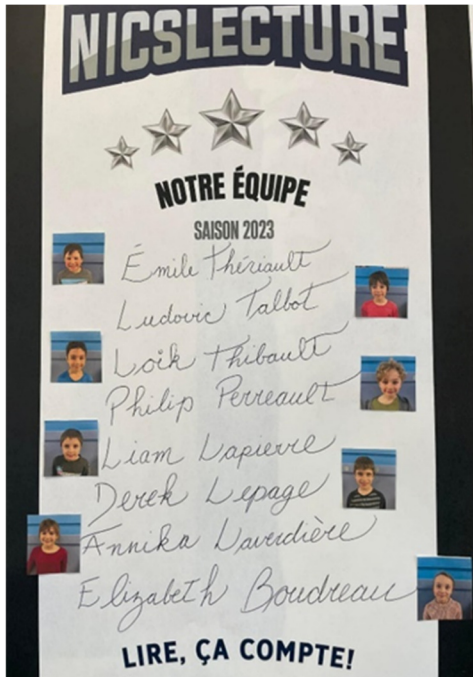 NICSLECTURE
NOTRE ÉQUIPE
SAISON 2023
Émile Thériault
Ludovic Talbot
Loïk Thibault
Philip Perreault
Liam Lapierre
Derek Lepage
Annika Laverdière
Elizabeth Boudreau
LIRE, ÇA COMPTE!